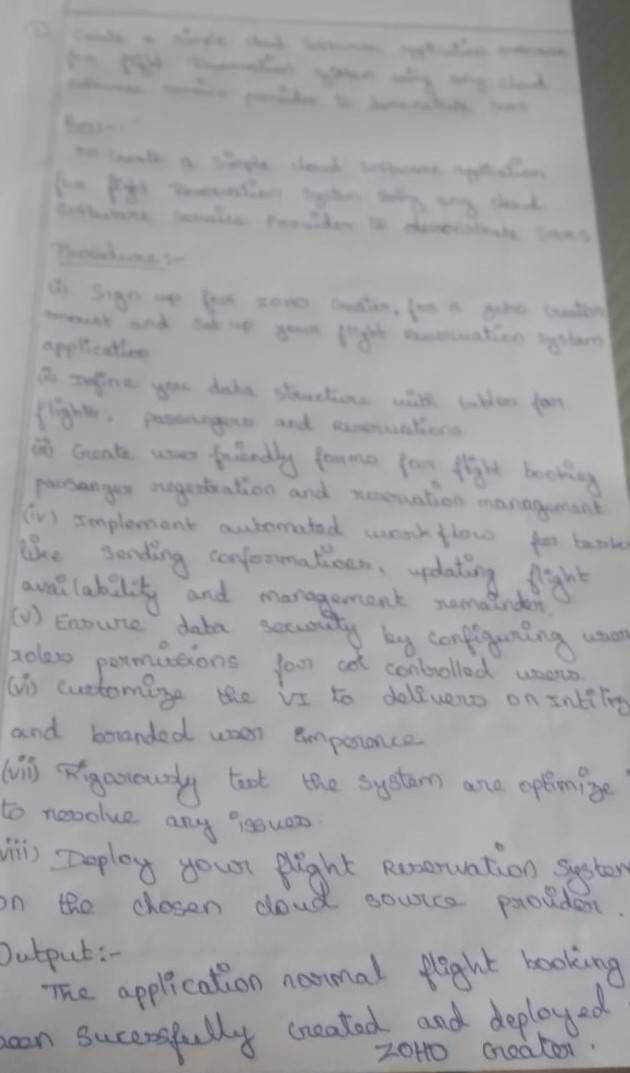 Create a simple cloud software application software
for flight Reservation system using any cloud
software service provider to demonstrate SaaS
To Create a simple cloud software application
for flight Reservation system using any cloud
Software Service Provider to demonstrate SaaS
Procedure :-
(i) Sign up for ZOHO Creater, for a zoho creater
and set up your flight Reservation system
application
(ii) Define you data structure with tables for
flights, passangers and Reservations
(iii) Create user friendly forms for flight booking
passanger regestration and reservation management
(iv) Implement automated workflow for tasks
like sending conformations, updating flight
availability and management remainder.
(v) Ensure data security by configuring user
roles permissions for controlled users.
(vi) Customize the UI to delivers on
and branded user
(vii) Rigarously test the system are optimize
to resolve any issues.
viii) Deploy your flight Reservation System
on the chosen cloud source provider.
Output:-
The application normal flight booking
been sucessfully created and deployed
ZOHO Creater.